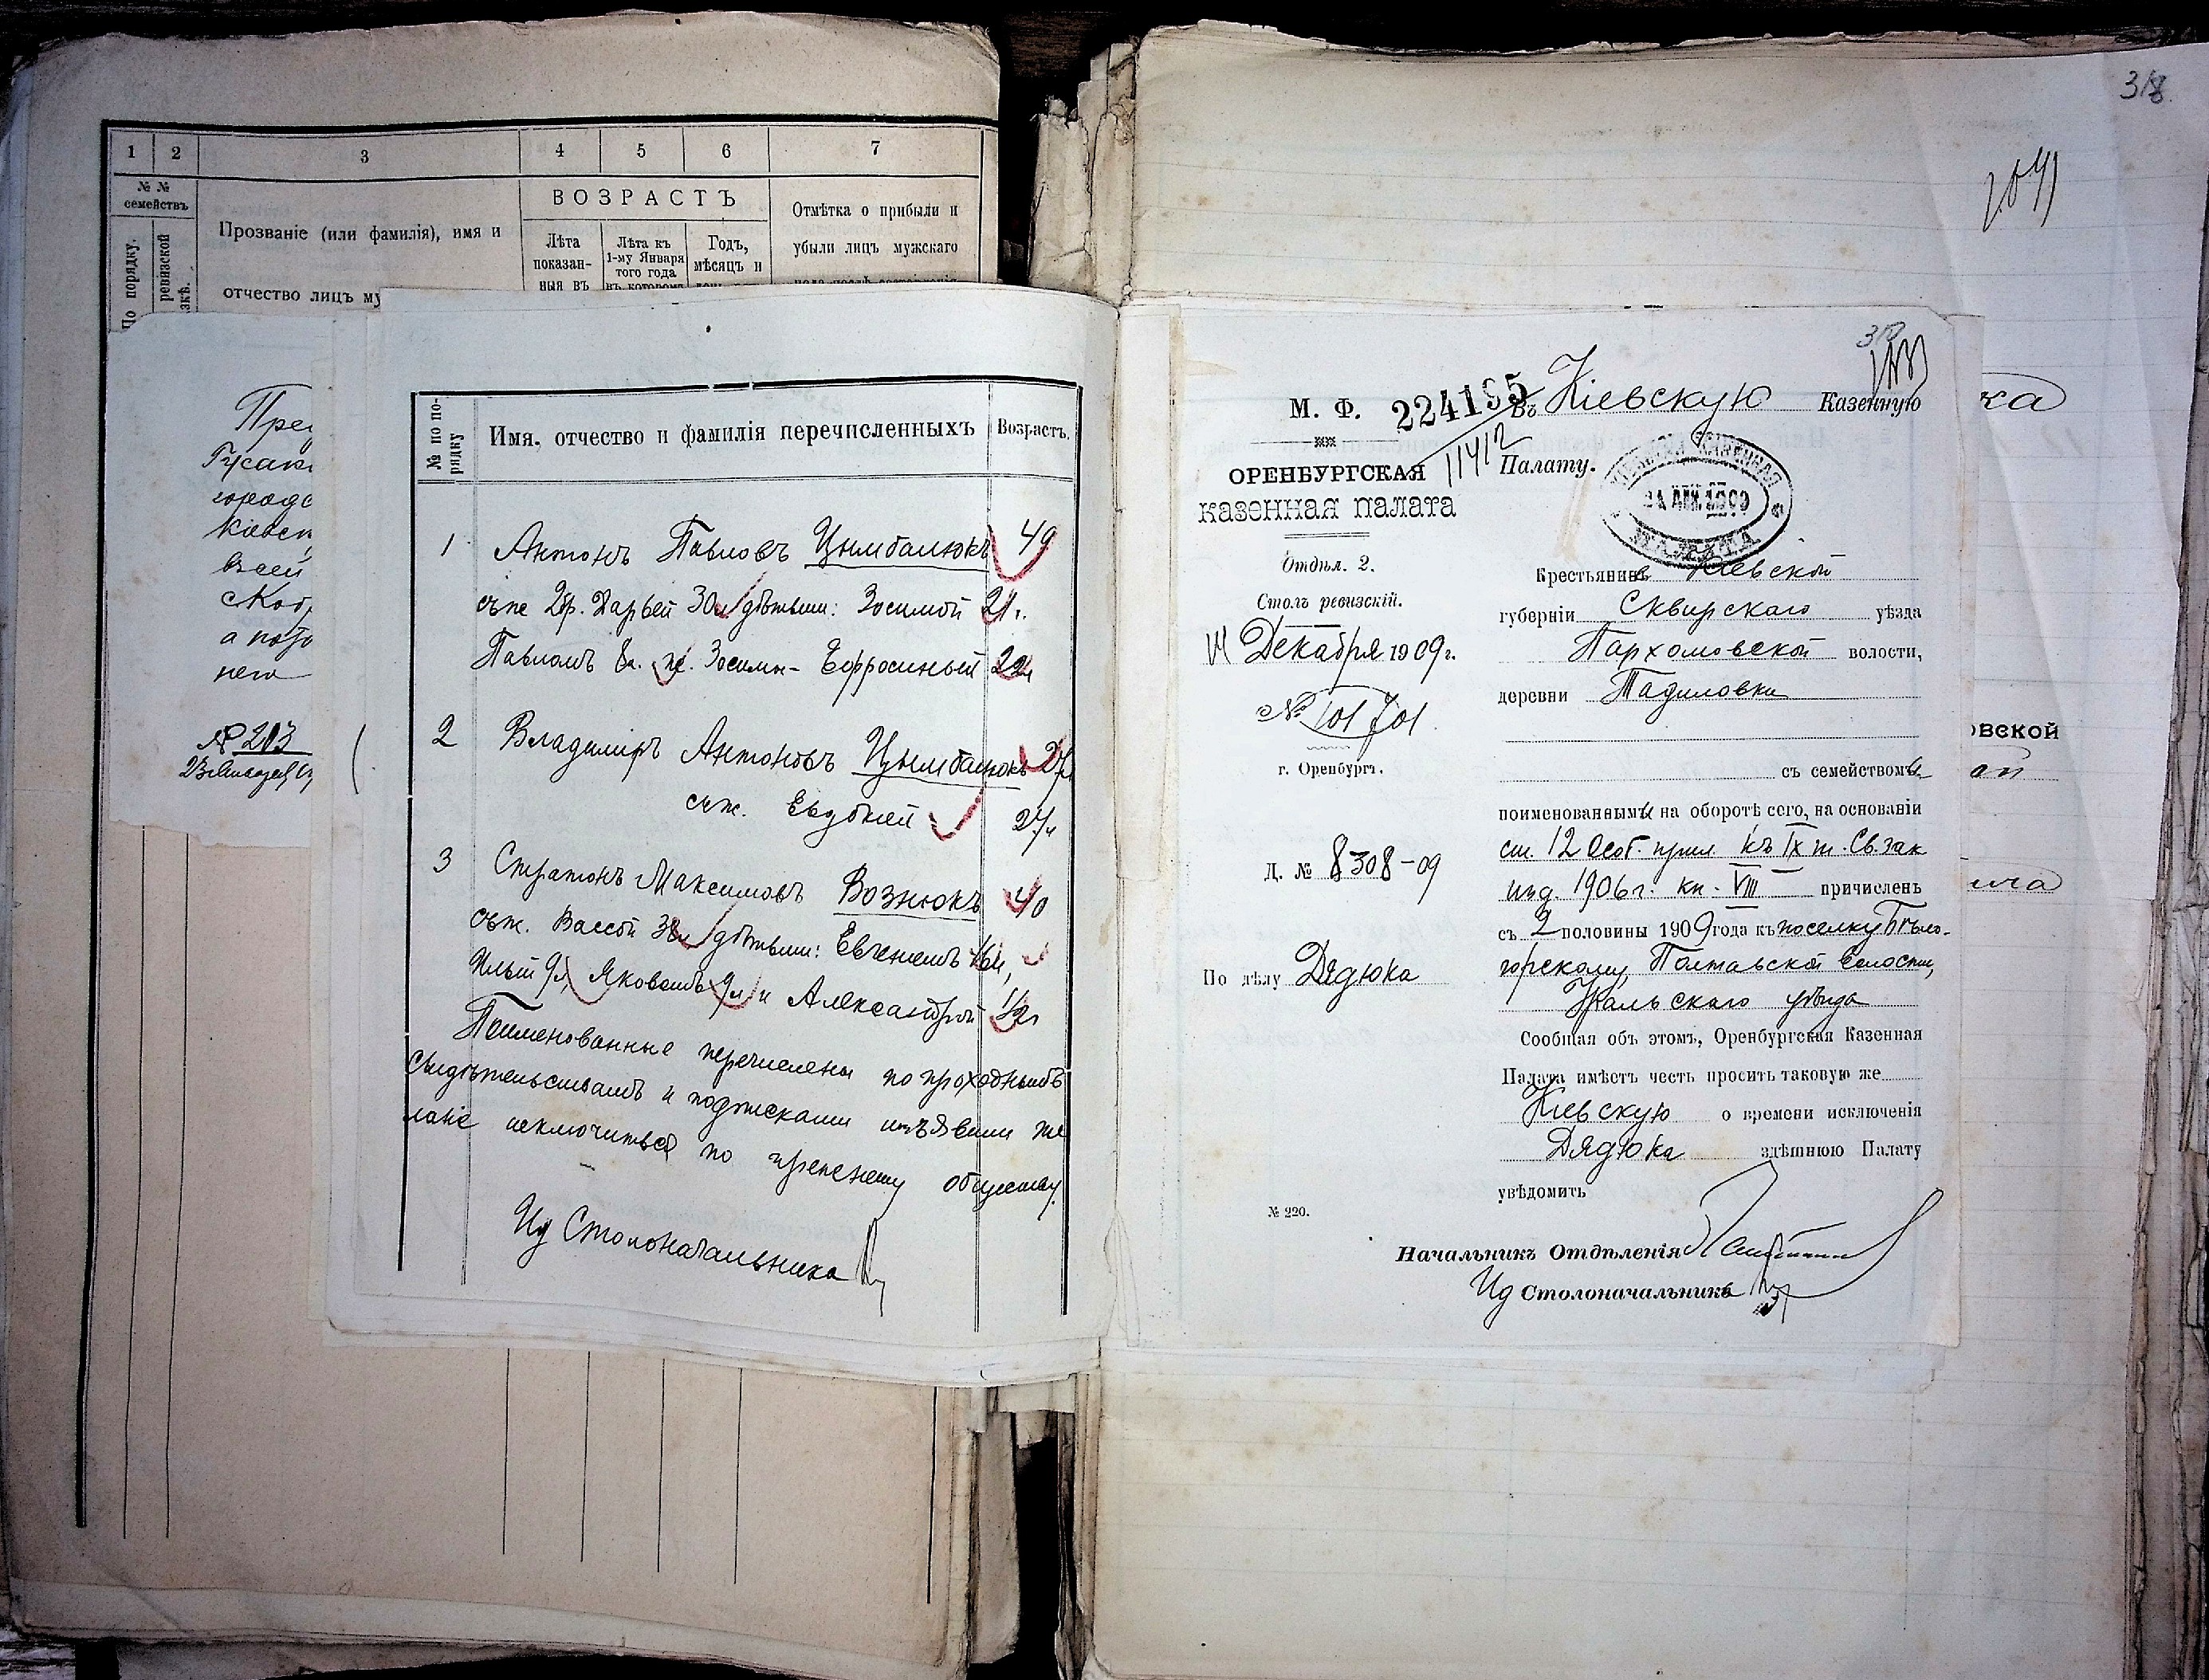 1 2 3 4 5 6 7
№ №
семействъ
По порядку.
ревизской
ВОЗРАСТЪ
Прозваніе (или фамилія), имя и
отчество лицъ му
Лѣта
показан-
ныя въ
Лѣта къ
1-му Января
того года
въ которомъ
Годъ,
мѣсяцъ и
Отмѣтка о прибыли и
убыли лицъ мужскаго
Гусак
№ 213
№ по по-
рядку
Имя, отчество и фамилія перечисленныхъ
Возрастъ.
1 Антонъ Павловъ Цымбалюкъ 49
съ ж. Дарьей 30 л дѣтьми: Зосимой 21 г.
Павломъ 8 л. ж. Зосимы - Ефросиньей 22 л
2 Владиміръ Антоновъ Цымбалюкъ 27 л
съ ж. Евдокіей 24 л
3 Стратонъ Максимовъ Вознюкъ 40
съ ж. Вассой 38 л дѣтьми: Евгеніемъ 16 л,
Ильей 9 л, Яковомъ 9 л и Александрой 1/2 г
Поименованные перечислены по проходнымъ
свидѣтельствамъ и подписками изъявили же
ланіе исключиться по прежнему обществу.
Ид Столоначальника
318
М. Ф. 224195
11412
Въ Кіевскую Казенную
Палату.
КІЕВСКАЯ КАЗЕННАЯ
ПАЛАТА
ОРЕНБУРГСКАЯ
КАЗЕННАЯ ПАЛАТА
Отдѣл. 2.
Столъ ревизскій.
Декабря 1909 г.
№ 101701
г. Оренбургъ.
Д. № 8308-09
По дѣлу Дядюка
№ 220.
Крестьянинъ Кіевской
губерніи Сквирскаго уѣзда
Пархомовской волости,
деревни Тадиловки
съ семействомъ
поименованными на оборотѣ сего, на основаніи
ст. 12 Особ. прил къ IX т. Св. зак
изд. 1906 г. кн. VIII причисленъ
съ 2 половины 1909 года къ поселку Бѣло-
горскому, Полтавской волости,
Уральскаго уѣзда
Сообщая объ этомъ, Оренбургская Казенная
Палата имѣетъ честь просить таковую же
Кіевскую о времени исключенія
Дядюка здѣшнюю Палату
увѣдомить
Начальникъ Отдѣленія
Ид Столоначальника
ка
овской